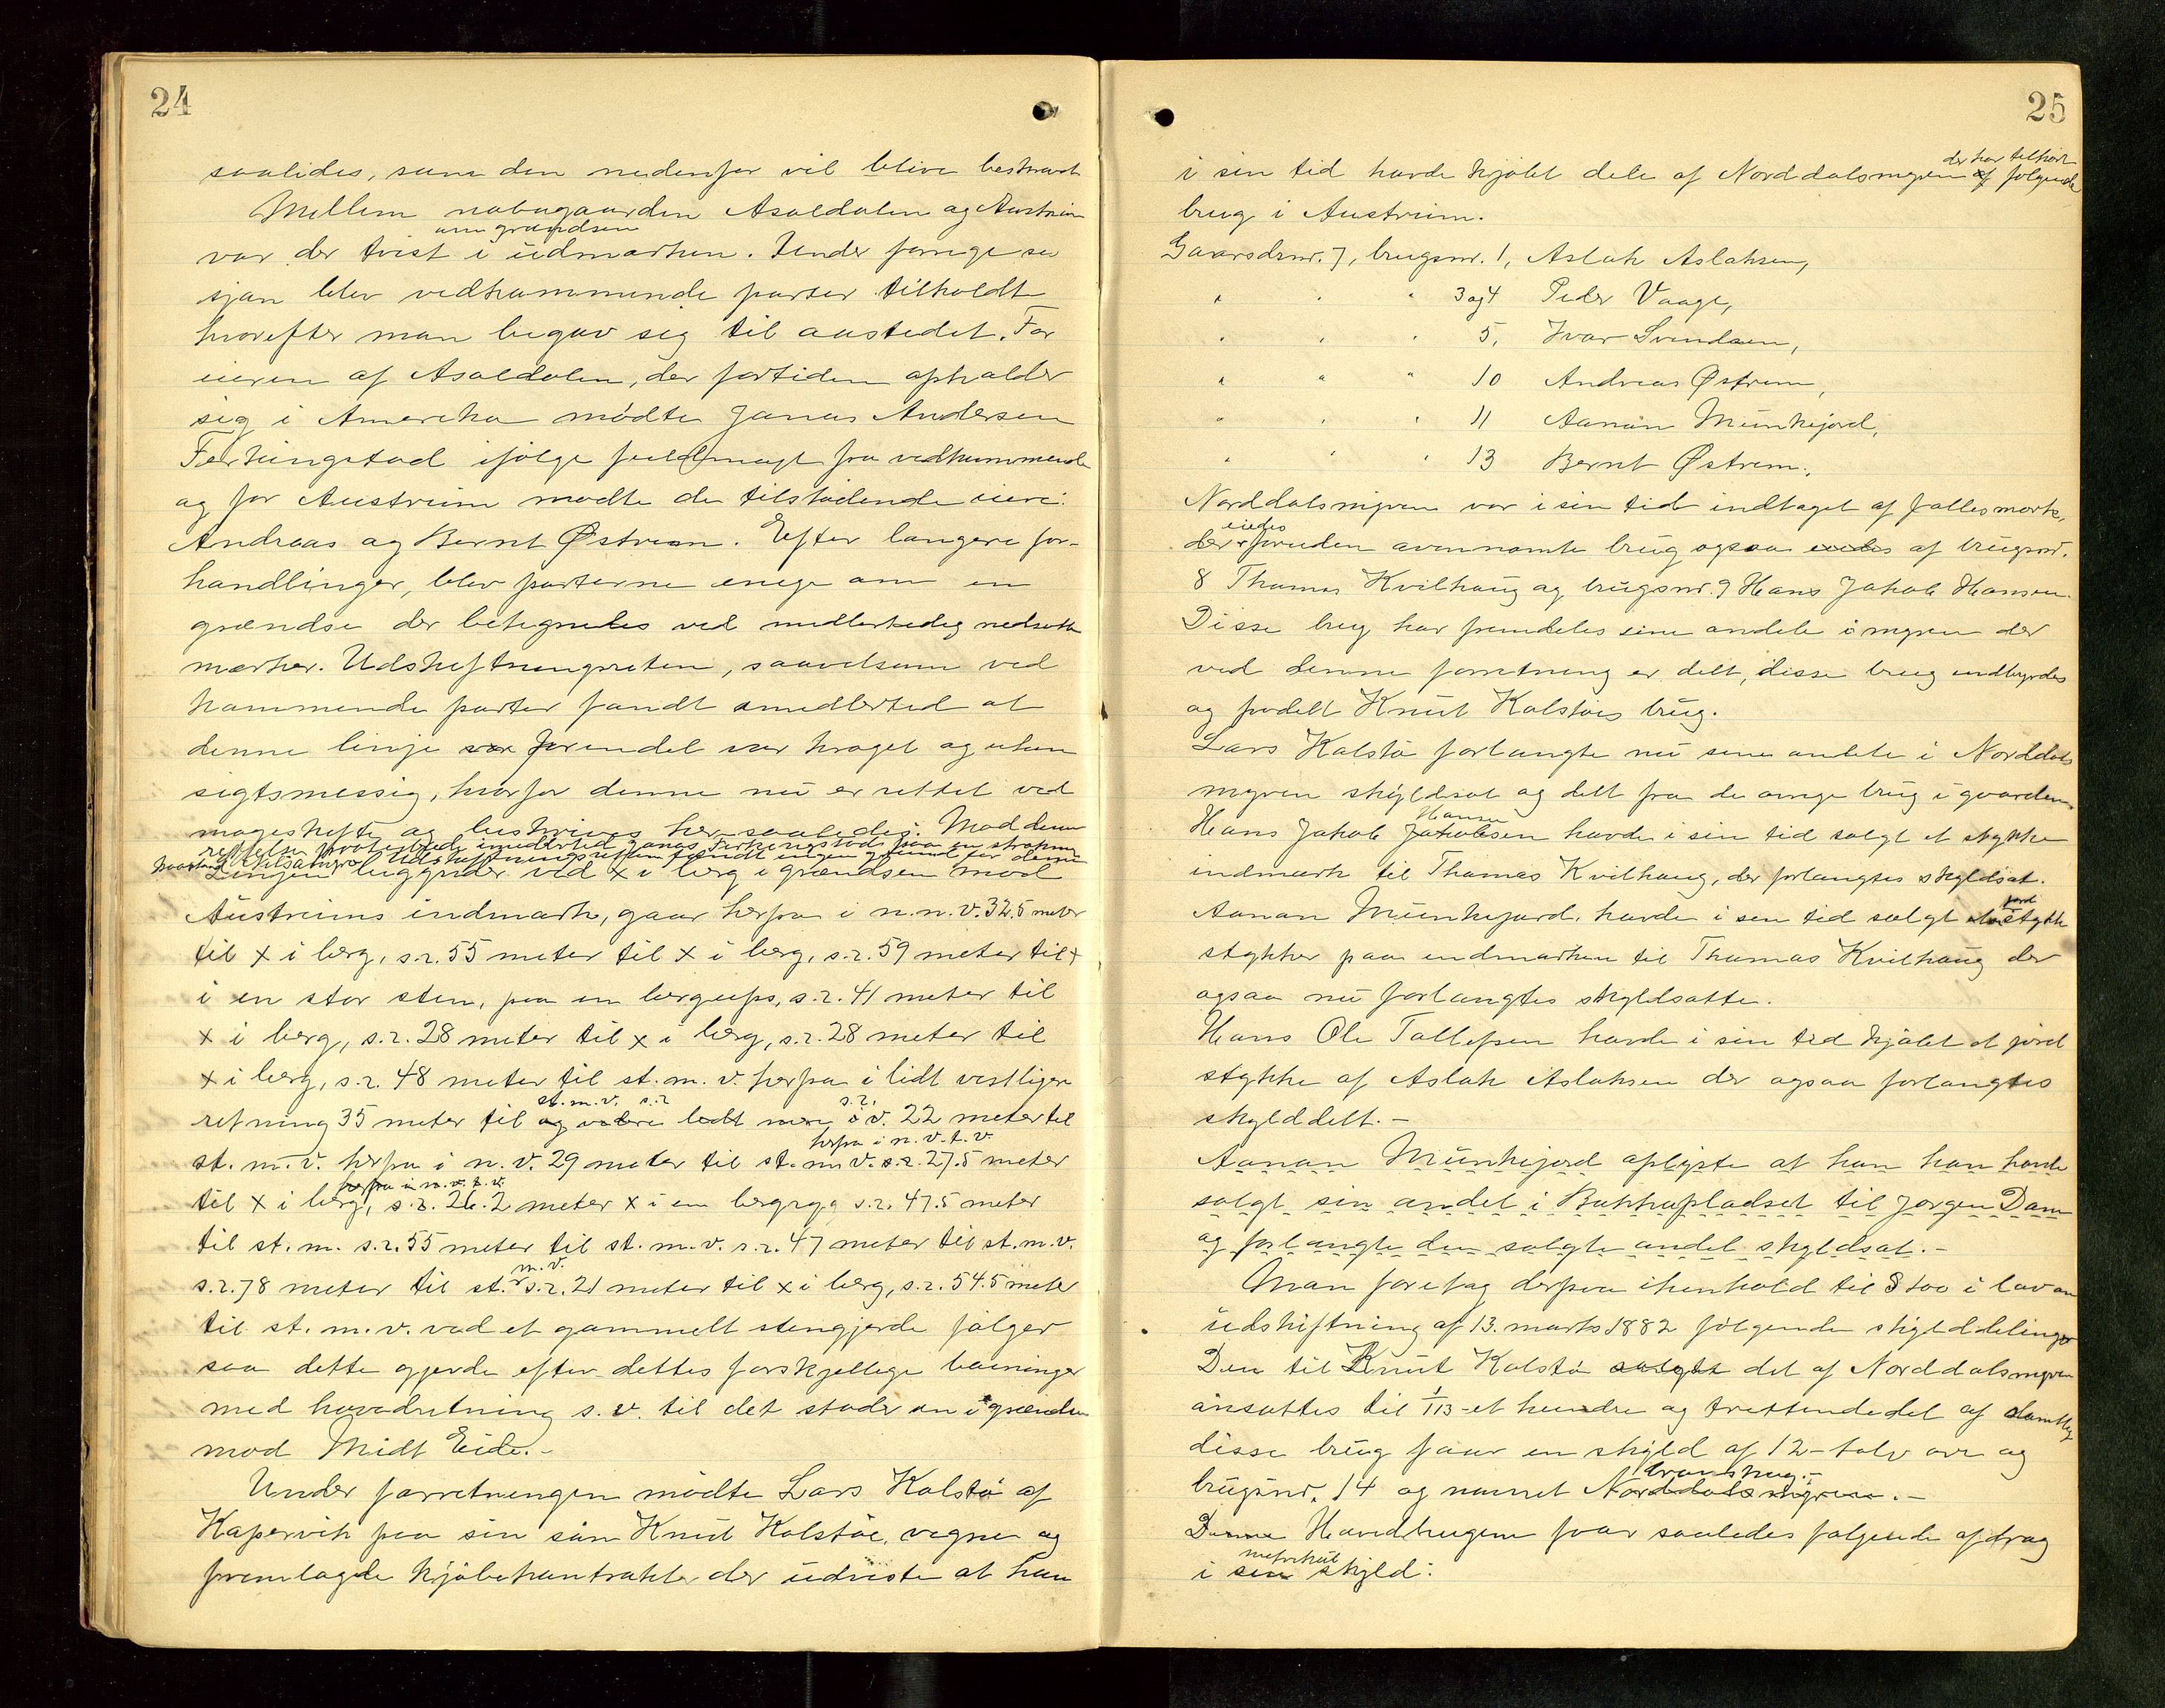 24
saaledes, som den nedenfor vil blive beskrævet
Mellem nabogaarden Asaldalen og Austrim
var der tvist om grændsen i udmarken. Under forrige se
sjon blev vedkommende parter tilholdt
hvorefter man begav sig til aastedet. For
eieren af Asaldalen, der fortiden opholder
sig i Amerika mødte Jonas Andersen
Ferkingstad ifølge fuldmagt fra vedkommende
og for Austrim mødte de tilstødende eiere:
Andreas og Bernt Østrem. Efter længere for-
handlinger, blev parterne enige om en
grændse der betegnedes ved midlertidig nedsatte
mærker. Udskiftningsretten, saavelsom ved
kommende parter fandt imedlertid at
denne linje forendel var kroget og uhen
sigtsmessig, hvorfor denne nu er rettet ved
mageskifte og beskrives her saaledes: Mod denne
rettelse protesterede imidlertid Jonas Ferkingstad
Udskiftningsretten fandt ingen grund for denne
Linjen begynder ved x i berg i grændsen mod
Austrims indmark, gaar herfra i n.n.v. 32.5 meter
til x i berg, s.r. 55 meter til x i berg, s.r. 59 meter til x
i en stor sten, paa en bergups, s.r. 41 meter til
x i berg, s.r. 28 meter til x i berg, s.r. 28 meter til
x i berg, s.r. 48 meter til st. m. v. herfra i lidt vestligere
retning 35 meter til st. m. v. s.r. 22 meter til
st. m. v. herfra i n. v. 29 meter til st. m. v. herfra i n. v. t. v. 27.5 meter
til x i berg, herfra i n. v. t. v. 26.2 meter x i en bergryg s.r. 47.5 meter
til st. m. s.r. 55 meter til st. m. v. s.r. 47 meter til st. m. v.
s.r. 78 meter til st. m. v. s.r. 21 meter til x i berg, s.r. 54.5 meter
til st. m. v. ved et gammelt stengjerde følger
saa dette gjerde efter dettes forskjellige bøininger
med hovedretning s. v. til det støder an i grændsen
mod Midt Eide.-
Under forretningen mødte Lars Kolstø af
Kopervik paa sin søn Knut Kolstøe, vegne og
fremlagde kjøbekontrakter der udviste at han
25
i sin tid havde kjøbt dele af Norddalsmyren der har tilhørt følgende
brug i Austrim.
Gaardsnr. 7, brugsnr. 1, Aslak Aslaksen,
" " " 3 og 4 Peder Vaage,
" " " 5, Ivar Svendsen,
" " " 10 Andreas Østrem,
" " " 11 Aanan Munkejord,
" " " 13 Bernt Østrem.,
Norddalsmyren var i sin tid indtaget af fællesmark,
der eiedes foruden avennævnte brug ogsaa af brugsnr.
8 Thomas Kvilhaug og brugsnr. 9 Hans Jakob Hansen.
Disse brug har fremdeles sine andele i myren der
ved denne forretning er delt, disse brug indbyrdes
og fordelt Knut Kolstøes brug.
Lars Kolstø forlangte nu sine andele i Norddals
myren skyldsat og delt fra de øvrige brug i gaarden.
Hans Jakob Hansen havde i sin tid solgt et stykke
indmark til Thomas Kvilhaug, der forlangtes skyldsat.
Aanan Munkejord, havde i sin tid solgt jord
stykker paa indmarken til Thomas Kvilhaug der
ogsaa nu forlangtes skyldsatte.
Hans Ole Tollefsen havde i sin tid kjøbt et jord
stykke af Aslak Aslaksen der ogsaa forlangtes
skylddelt.-
Aanan Munkejord oplyste at han han havde
solgt sin andel i Bukkapladset til Jørgen Dam
og forlangte den solgte andel skyldsat.-
Man foretog derpaa ihenhold til § 100 i lov om
udskiftning af 13. marts 1882 følgende skylddelinger
Den til Knut Kolstø solgte del af Norddalsmyren
ansattes til 1/113 - et hundre og trettendedel af samtlige
disse brug faar en skyld af 12 - tolv øre og
brugsnr. 14 og navnet .-
Hovedbrugene faar saaledes følgende afdrag
i skyld: